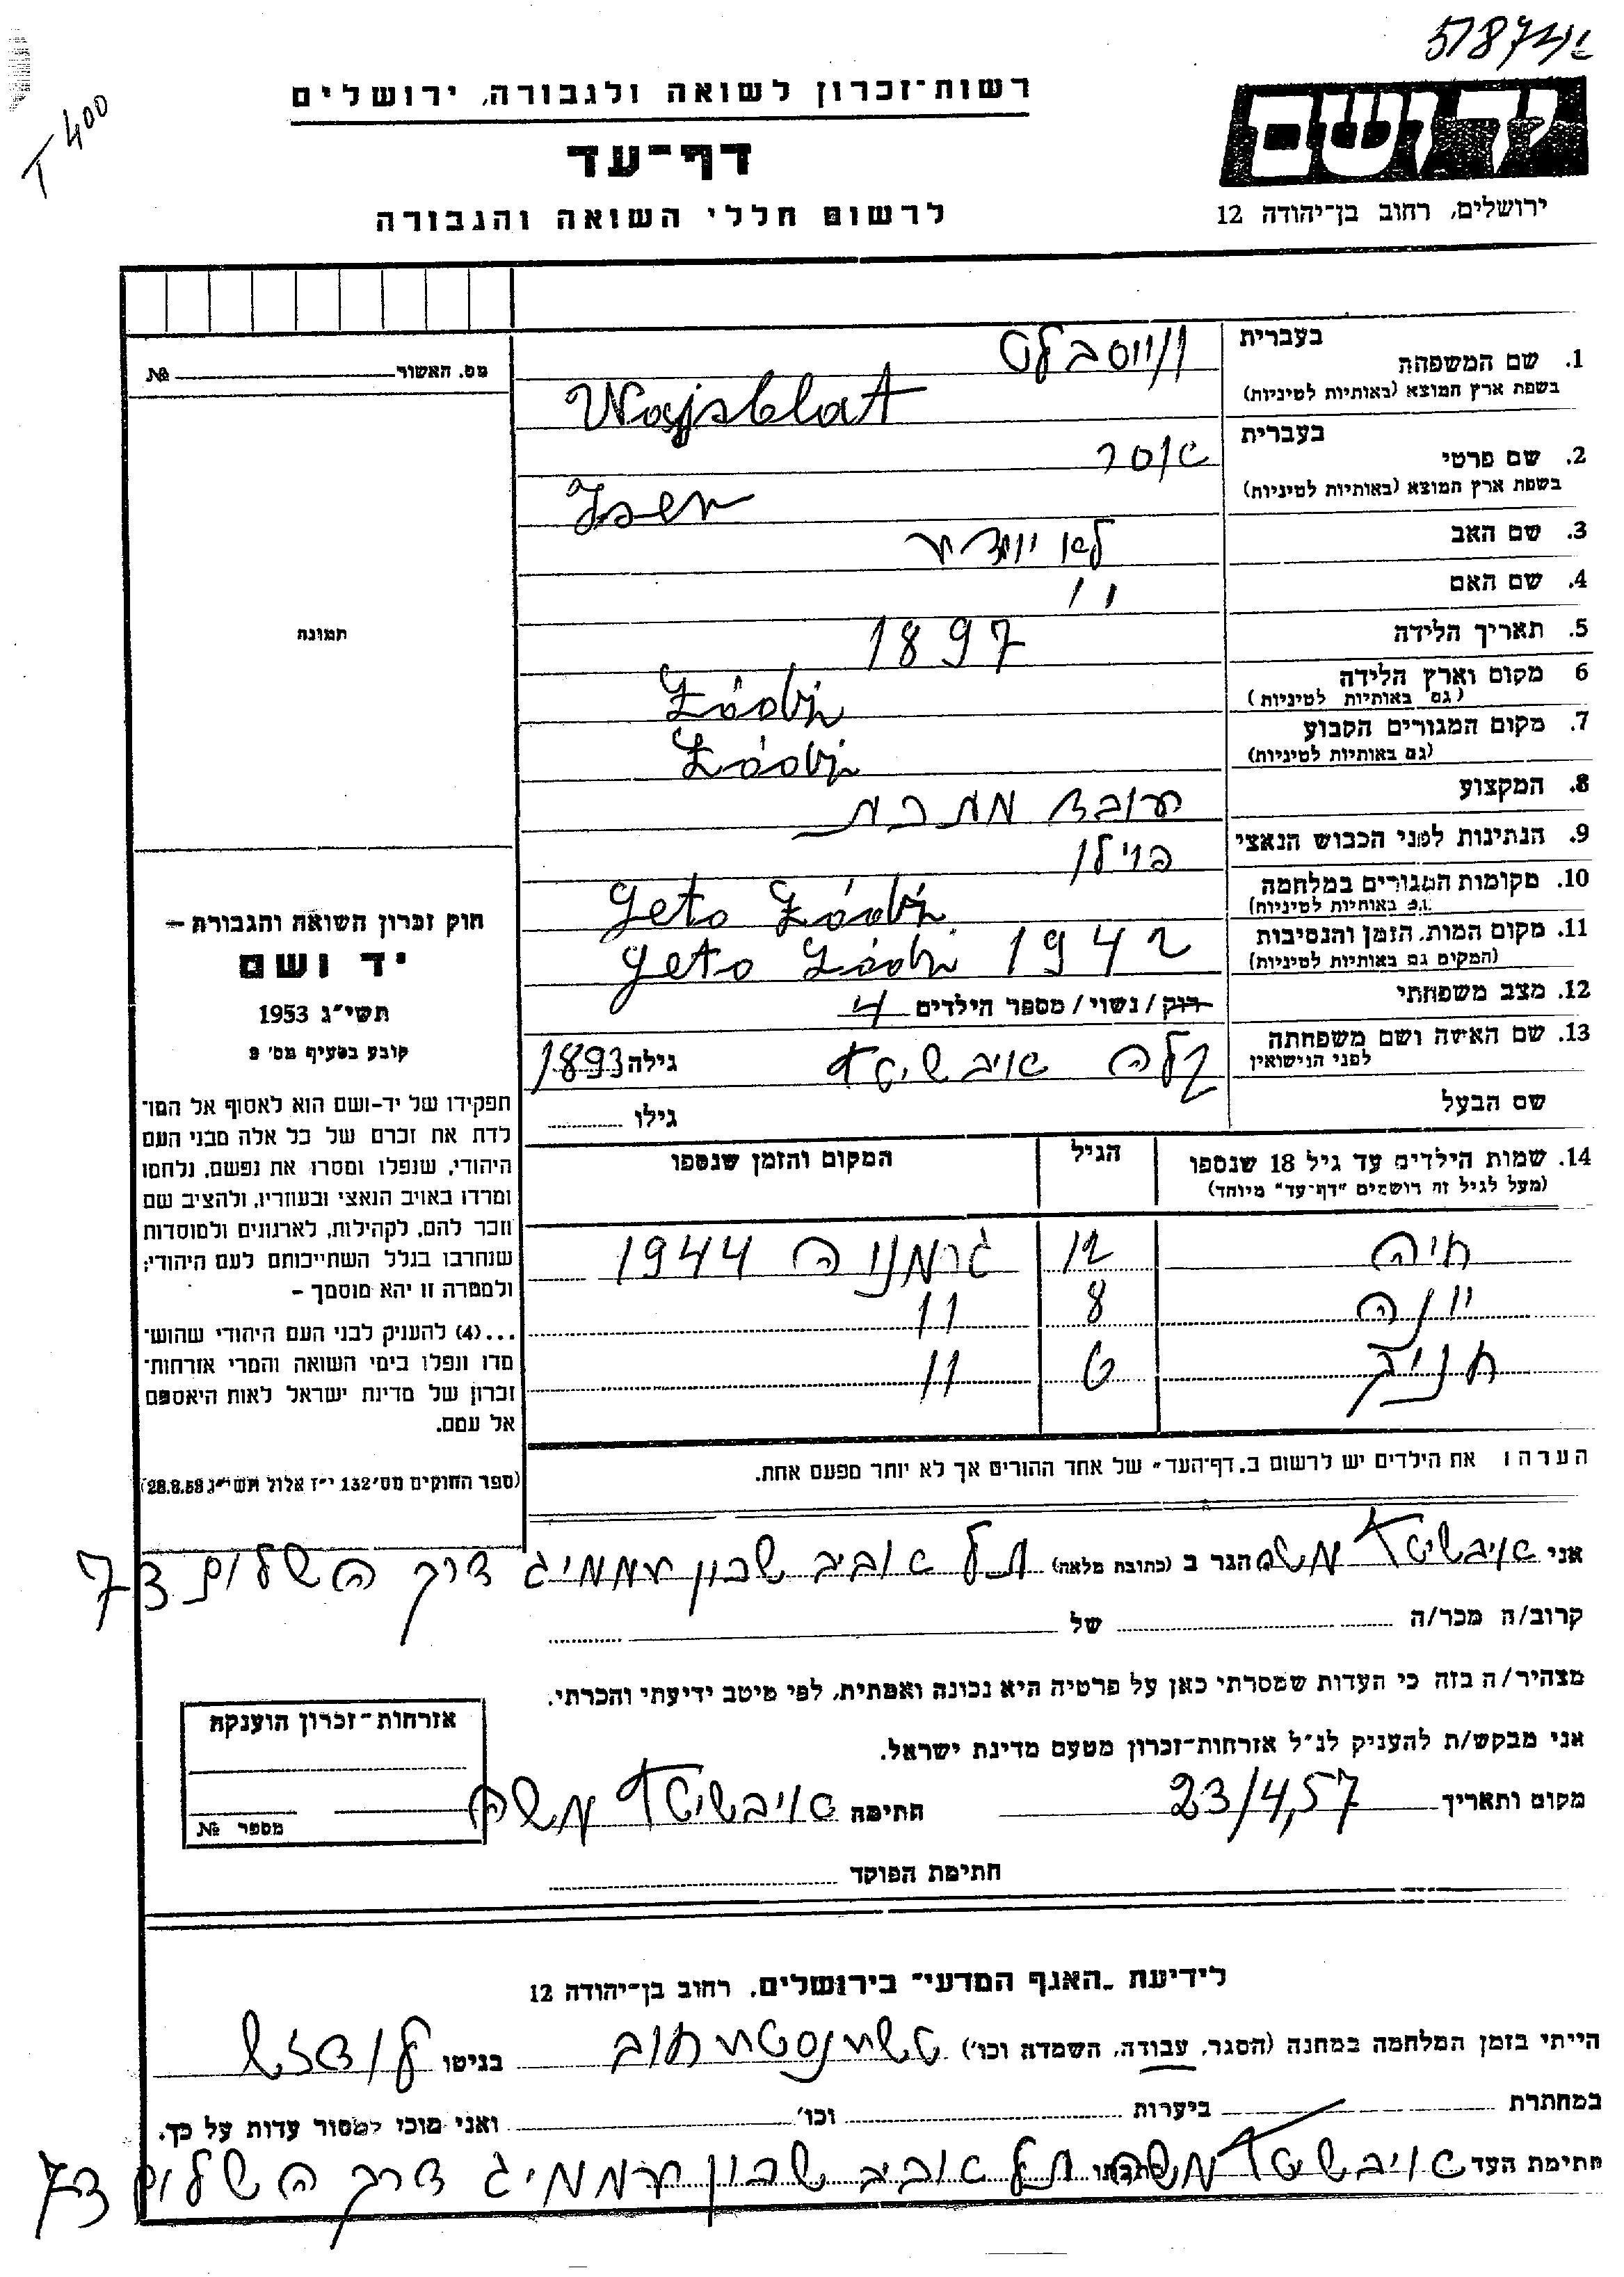 51874/4
T 400
רשות־זכרון לשואה ולגבורה, ירושלים
יד ושם
דף־עד
לרשום חללי השואה והגבורה
ירושלים, רחוב בן־יהודה 12
מס. האשור № 
בעברית
1. שם המשפחה
וייסבלט
בשפת ארץ המוצא (באותיות לטיניות)
Wajsblat
בעברית
2. שם פרטי
איסר
בשפת ארץ המוצא (באותיות לטיניות)
Iser
3. שם האב לא יודע
4. שם האם "
5. תאריך הלידה 1897
6 מקום וארץ הלידה
(גם באותיות לטיניות)
Łódź
7. מקום המגורים הקבוע
(גם באותיות לטיניות)
Łódź
8. המקצוע עובד מתכת
9. הנתינות לפני הכבוש הנאצי פוילן
10. מקומות המגורים במלחמה
(גם באותיות לטיניות)
Geto Łódź
11. מקום המות, הזמן והנסיבות
(המקום גם באותיות לטיניות)
Geto Łódź 1942
12. מצב משפחתי רוק/נשוי/מספר הילדים 4
13. שם האשה ושם משפחתה
לפני הנישואין
אייבשיטץ גילה 1893
שם הבעל גילו
14. שמות הילדים עד גיל 18 שנספו הגיל המקום והזמן שנספו
(מעל לגיל זה רושמים "דף־עד" מיוחד)
חיה 12 גרמניה 1944
יונה 8 "
6 "
הערה: את הילדים יש לרשום ב„דף־העד" של אחד ההורים אך לא יותר מפעם אחת.
תמונה
חוק זכרון השואה והגבורה –
יד ושם
תשי"ג 1953
קובע בסעיף מס' 2
תפקידו של יד-ושם הוא לאסוף אל המו־
לדת את זכרם של כל אלה מבני העם
היהודי, שנפלו ומסרו את נפשם, נלחמו
ומרדו באויב הנאצי ובעוזריו, ולהציב שם
וזכר להם, לקהילות, לארגונים ולמוסדות
שנחרבו בגלל השתייכותם לעם היהודי;
ולמטרה זו יהא מוסמך –
...(4) להעניק לבני העם היהודי שהוש־
מדו ונפלו בימי השואה והמרי אזרחות־
זכרון של מדינת ישראל לאות היאספם
אל עמם.
(ספר החוקים מס' 132 י"ז אלול תשי"ג 28.8.53)
אני אייבשיטץ משה הגר ב (כתובת מלאה) תל אביב שכון עממי ג דרך השלום 7
קרוב/ה מכר/ה של
מצהיר/ה בזה כי העדות שמסרתי כאן על פרטיה היא נכונה ואמתית, לפי מיטב ידיעתי והכרתי.
אני מבקש/ת להעניק לנ"ל אזרחות־זכרון מטעם מדינת ישראל.
מקום ותאריך 23/4,57 חתימה אייבשיטץ משה
חתימת הפוקד
אזרחות־זכרון הוענקה
מספר №
לידיעת „האגף המדעי" בירושלים, רחוב בן־יהודה 12
הייתי בזמן המלחמה במחנה (הסגר, עבודה, השמדה וכו') טשענסטחוב בגיטו לודזש
במחתרת ביערות וכו' ואני מוכן למסור עדות על כך.
חתימת העד אייבשיטץ משה כתבתו תל אביב שכון עממי ג דרך השלום